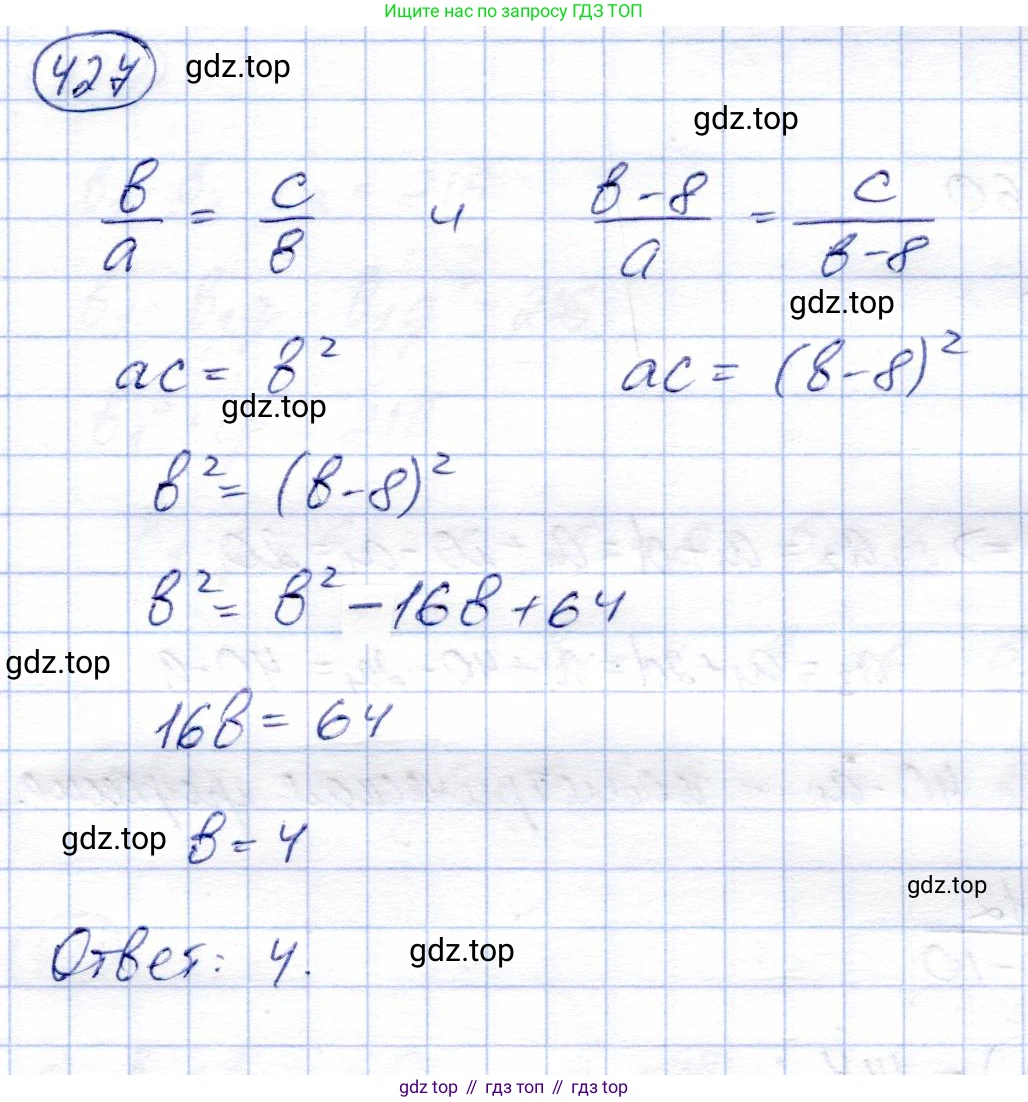 Ищите нас по запросу ГДЗ ТОП
427 gdz.top
gdz.top
в/а = с/в и в-8/а = с/в-8
gdz.top
ас = в² ас = (в-8)²
gdz.top
в² = (в-8)²
в² = в² - 16в + 64
gdz.top
16в = 64
gdz.top в = 4
gdz.top
Ответ: 4. gdz.top
gdz top // гдз топ // гдз top